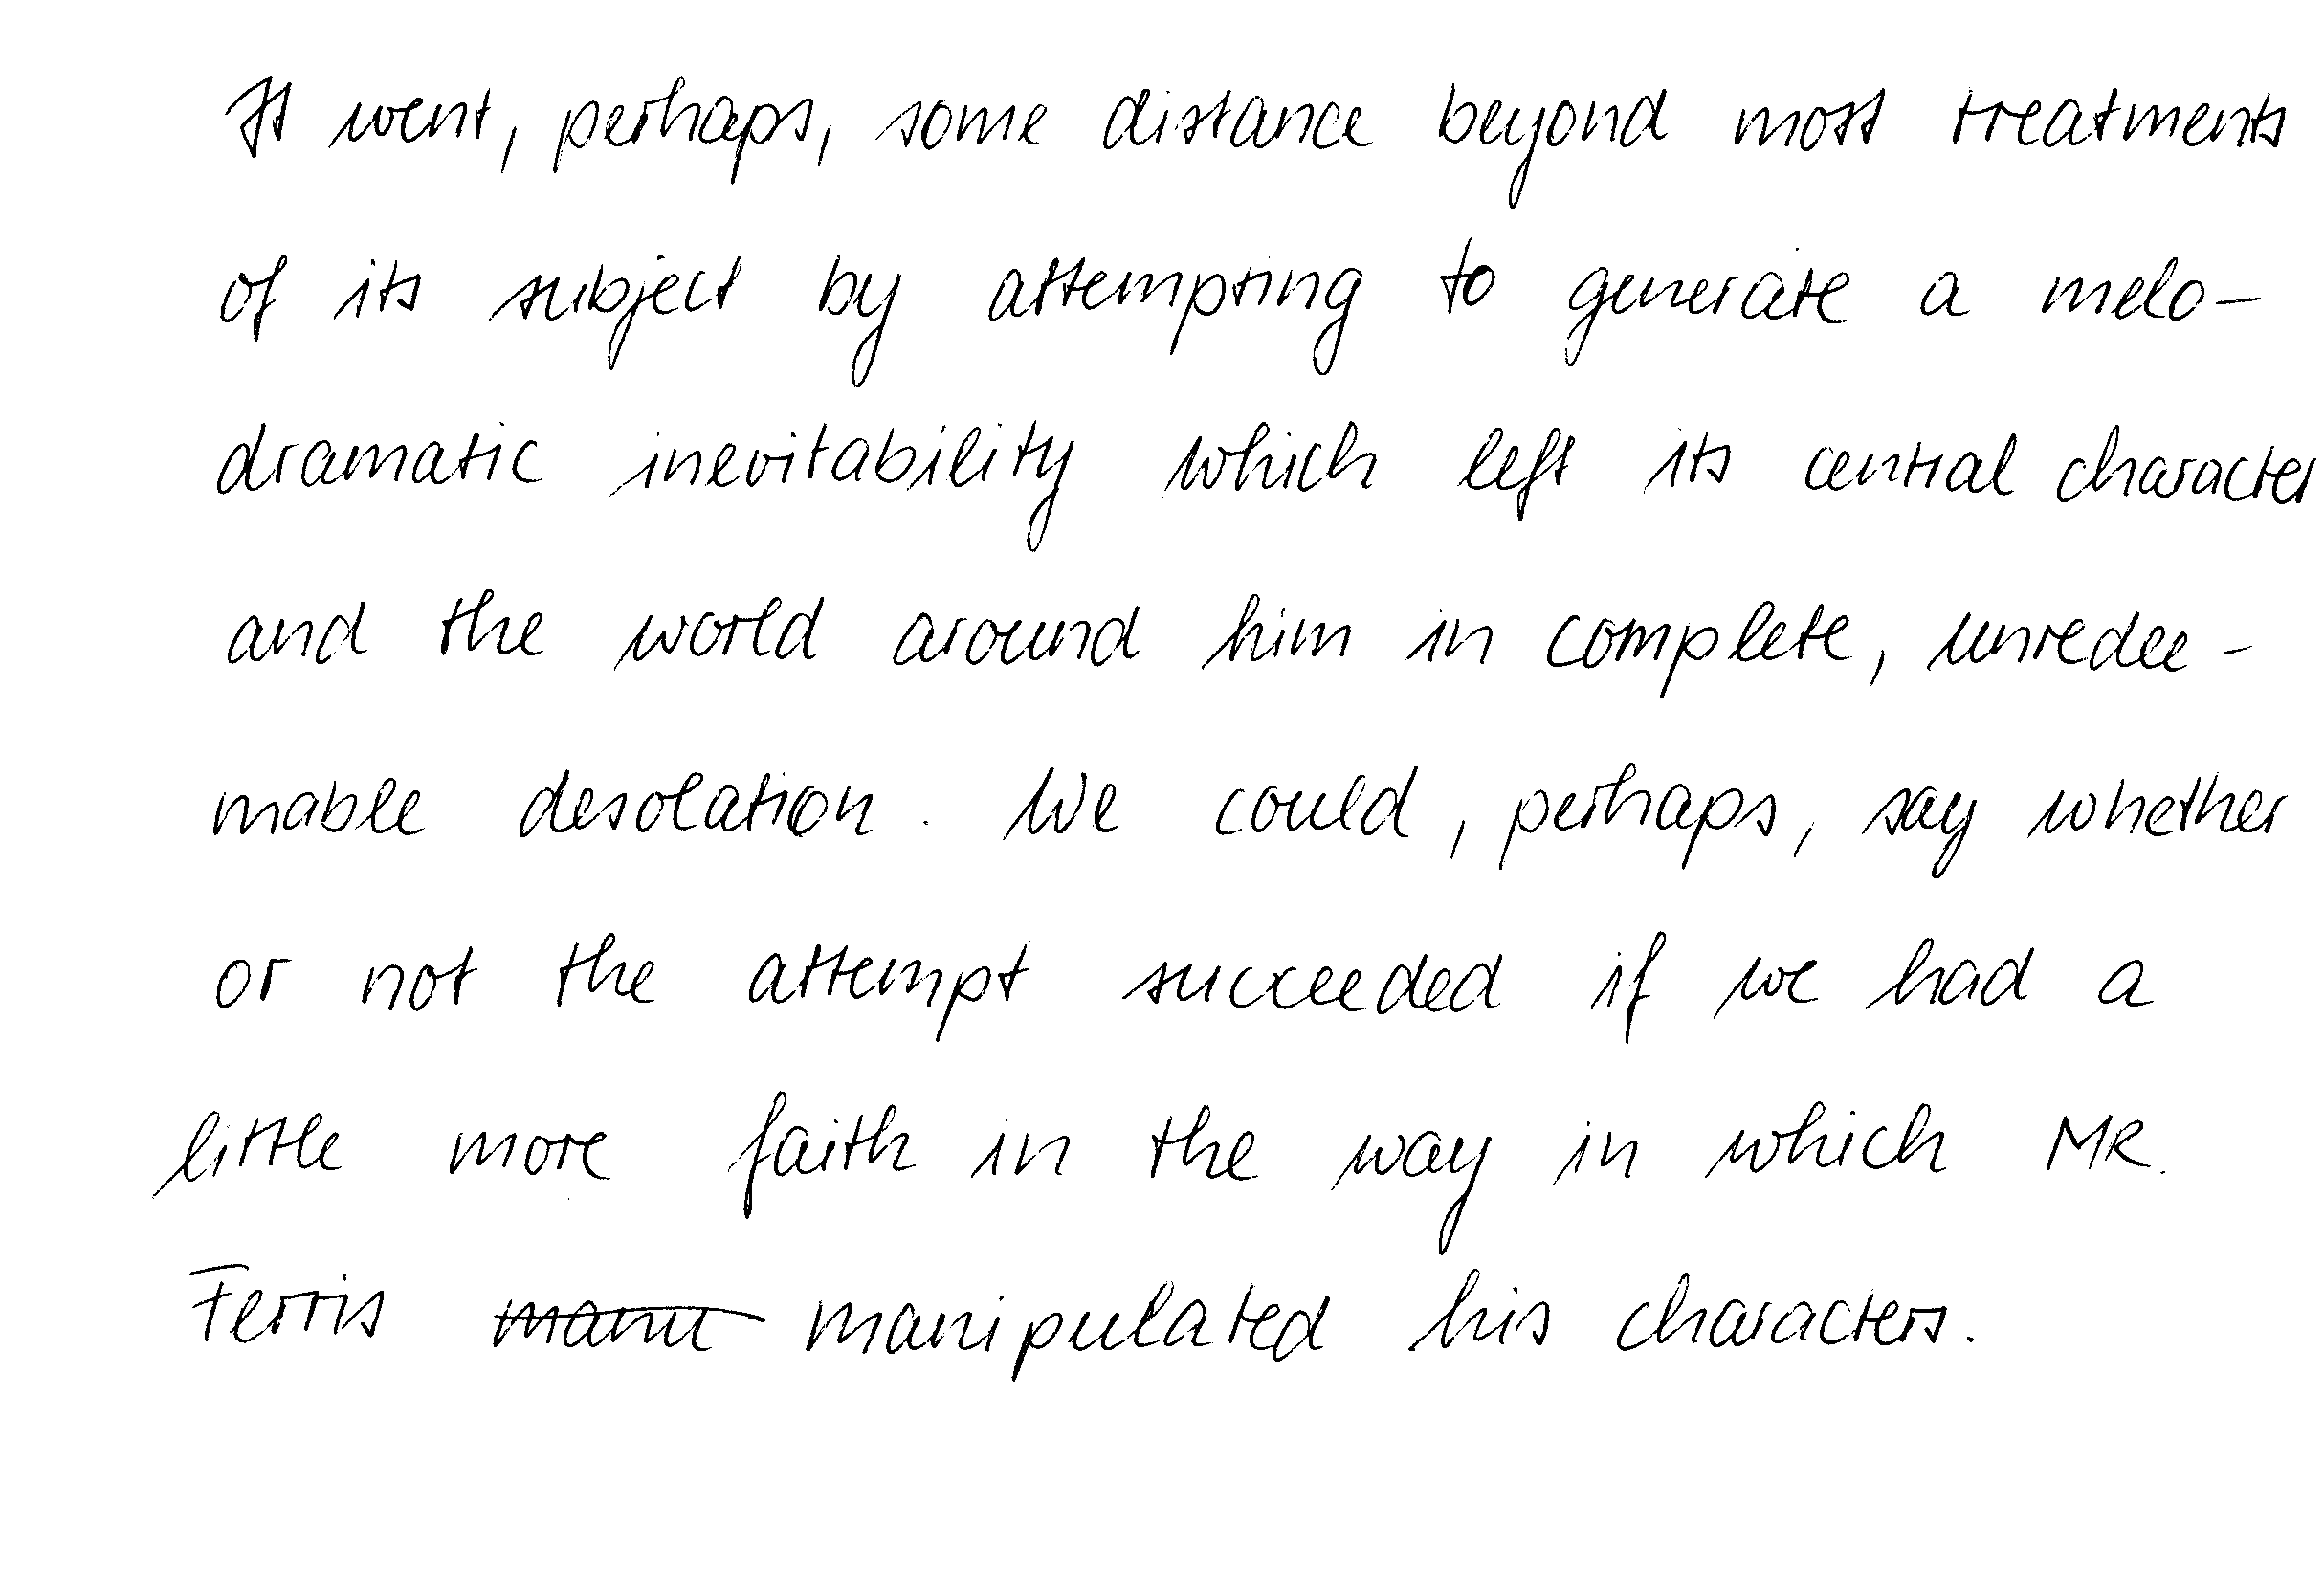 It went, perhaps, some distance beyond most treatments
of its subject by attempting to generate a melo-
dramatic inevitability which left its central character
and the world around him in complete, unredee-
mable desolation. We could, perhaps, say whether
or not the attempt succeeded if we had a
little more faith in the way in which MR.
Ferris manipulated his characters.